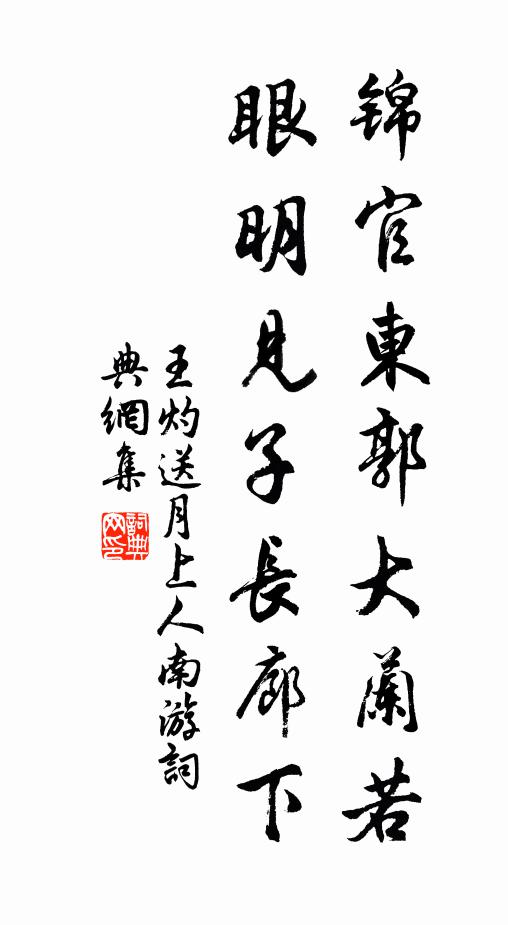 锦官東郭大蘭若
眼明見子長廊下
王灼送月上人南游詞
典網集
詞典网印